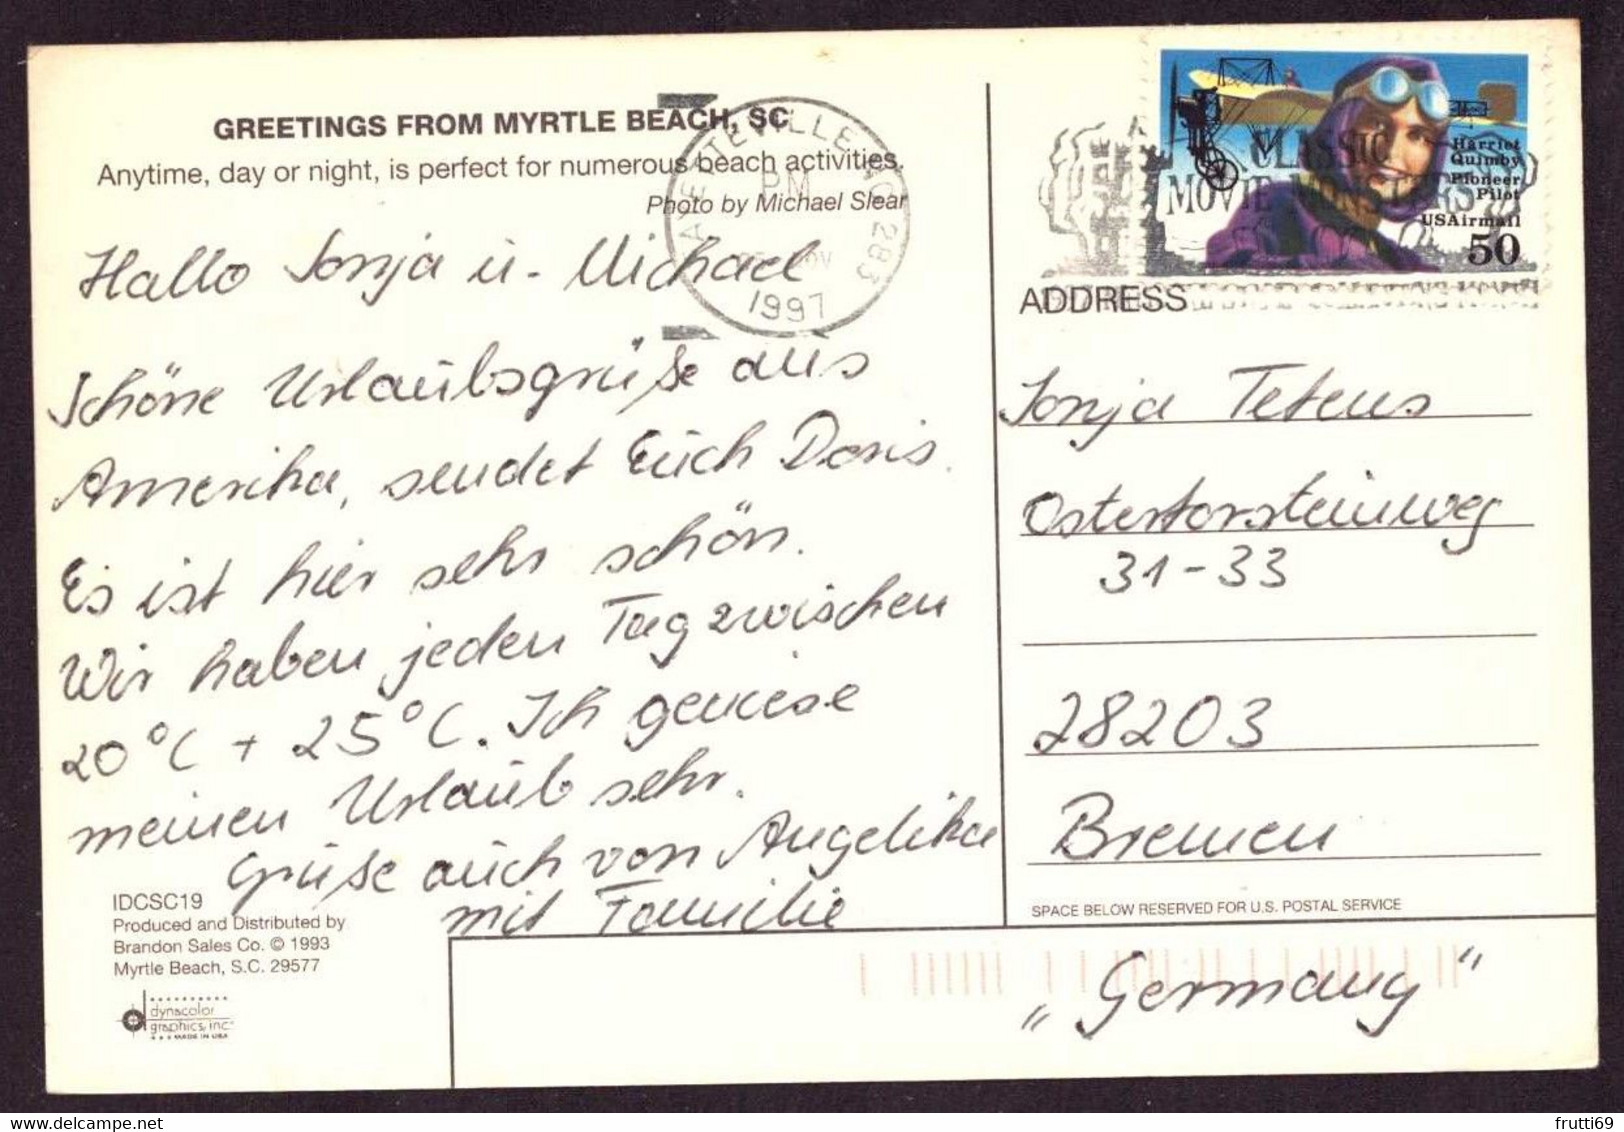 GREETINGS FROM MYRTLE BEACH, SC
Anytime, day or night, is perfect for numerous beach activities.
Photo by Michael Slear
Hallo Sonja u. Michael
Schöne Urlaubsgrüße aus
Amerika, sendet Euch Doris.
Es ist hier sehr schön.
Wir haben jeden Tag zwischen
20°C + 25°C. Ich geniese
meinen Urlaub sehr.
Grüße auch von Angelika
mit Familie
IDCSC19
Produced and Distributed by
Brandon Sales Co. © 1993
Myrtle Beach, S.C. 29577
dynacolor
graphics, inc.
MADE IN USA
PM
NOV
1997
CLASSIC
MOVIE MONSTERS
Harriet
Quimby
Pioneer
Pilot
USAirmail
50
ADDRESS
Sonja Tetens
Ostertorsteinweg
31-33
28203
Bremen
SPACE BELOW RESERVED FOR U.S. POSTAL SERVICE
„Germany“
frutti69